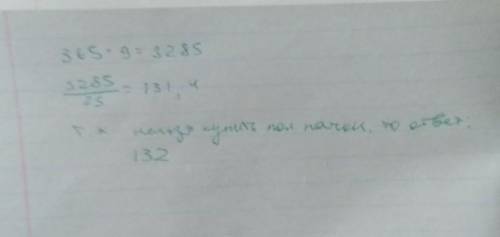 365 · 9 = 3285
3285/25 = 131,4
т.к нельзя купить пол пачки, то ответ:
132